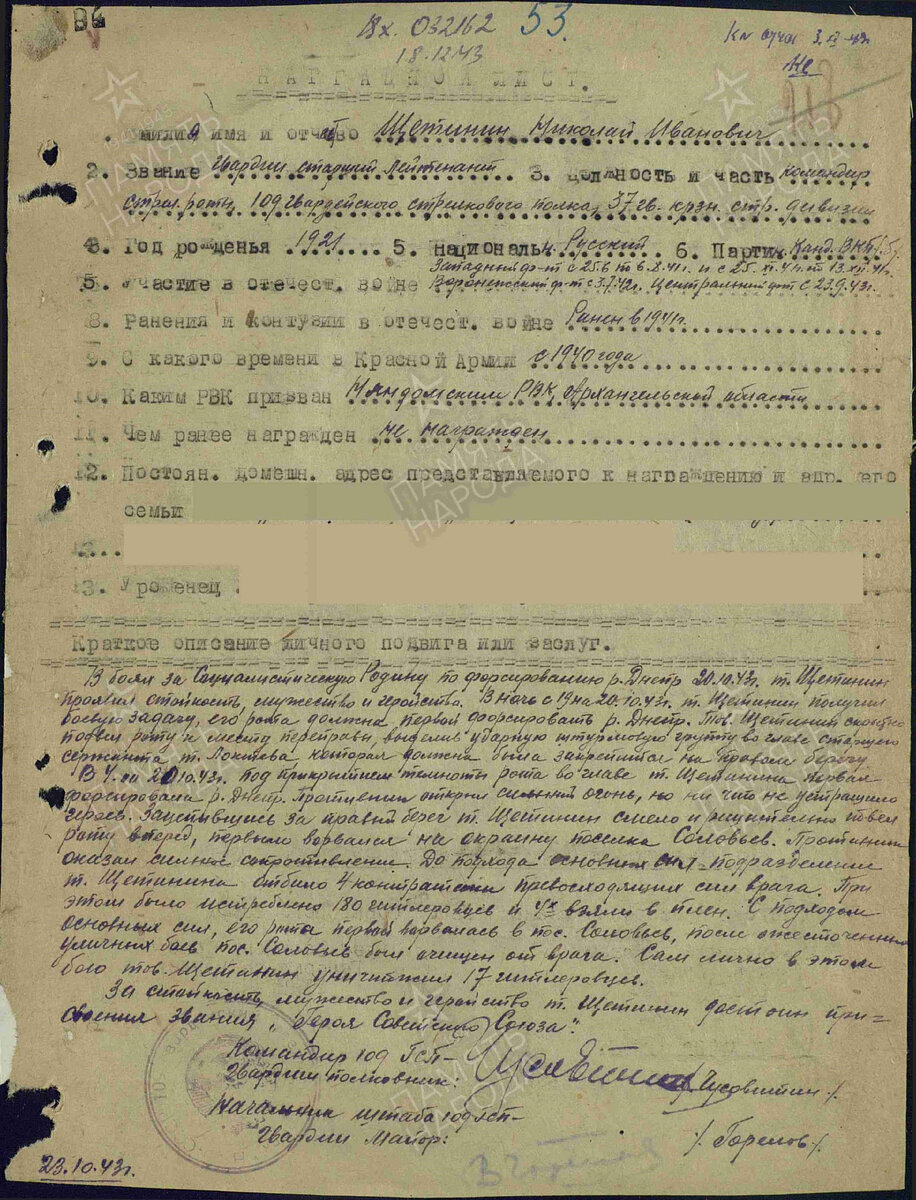 86
Вх. 032162 53.
18.12.43
НАГРАДНОЙ ЛИСТ.
милия имя и отч во Щетинин Николай Иванович
2. Звание Гвардии старший лейтенант 3. Должность и часть Командир
стрел. роты, 109 гвардейского стрелкового полка, 37 гв. крзн. стр. дивизии
4. Год рожденья 1921 5. Национальн. Русский 6. Партийн. Канд. ВКП(б)
Западный фр-т с 25.6 по 6.8.41г. и с 25.XI.41г. по 13.XII.41г.
5. Участие в отечест. войне Воронежский фр-т с 3.7.42г. Центральный фрт с 23.9.43г.
8. Ранения и контузии в отечест. войне Ранен в 1941г.
9. С какого времени в Красной Армии с 1940 года
10. Каким РВК призван Няндомским РВК, Архангельской области
11. Чем ранее награжден не награжден
12. Постоян. домашн. адрес представляемого к награждению и адр. его
семьи
13. Уроженец
Краткое описание личного подвига или заслуг.
В боях за Социалистическую Родину по форсированию р. Днепр 20.10.43г. т. Щетинин
проявил стойкость, мужество и геройство. В ночь с 19 на 20.10.43г. т. Щетинин получил
боевую задачу, его рота должна первой форсировать р. Днепр. Тов. Щетинин скрытно
подвел роту к месту переправы, выделив ударную штурмовую группу во главе старшего
сержанта т. Локтева, которая должна была закрепиться на правом берегу.
В 4.00 20.10.43г. под прикрытием темноты рота во главе т. Щетинина первая
форсировала р. Днепр. Противник открыл сильный огонь, но ни что не устрашило
героев. Зацепившись за правый берег т. Щетинин смело и решительно повел
роту вперед, первым ворвался на окраину поселка Соловьев. Противник
оказал сильное сопротивление. До подхода основных сил подразделение
т. Щетинина отбило 4 контратаки превосходящих сил врага. При
этом было истреблено 180 гитлеровцев и 4х взяли в плен. С подходом
основных сил, его рота первой ворвалась в пос. Соловьев, после ожесточенных
уличных боев пос. Соловьев был очищен от врага. Сам лично в этом
бою тов. Щетинин уничтожил 17 гитлеровцев.
За стойкость, мужество и геройство т. Щетинин достоин при=
своения звания "Героя Советского Союза".
Командир 109 ГСП-
Гвардии полковник: /Чусовитин/.
Начальник штаба 109 гсп-
Гвардии Майор: /Горелов/.
23.10.43г.
ПАМЯТЬ НАРОДА